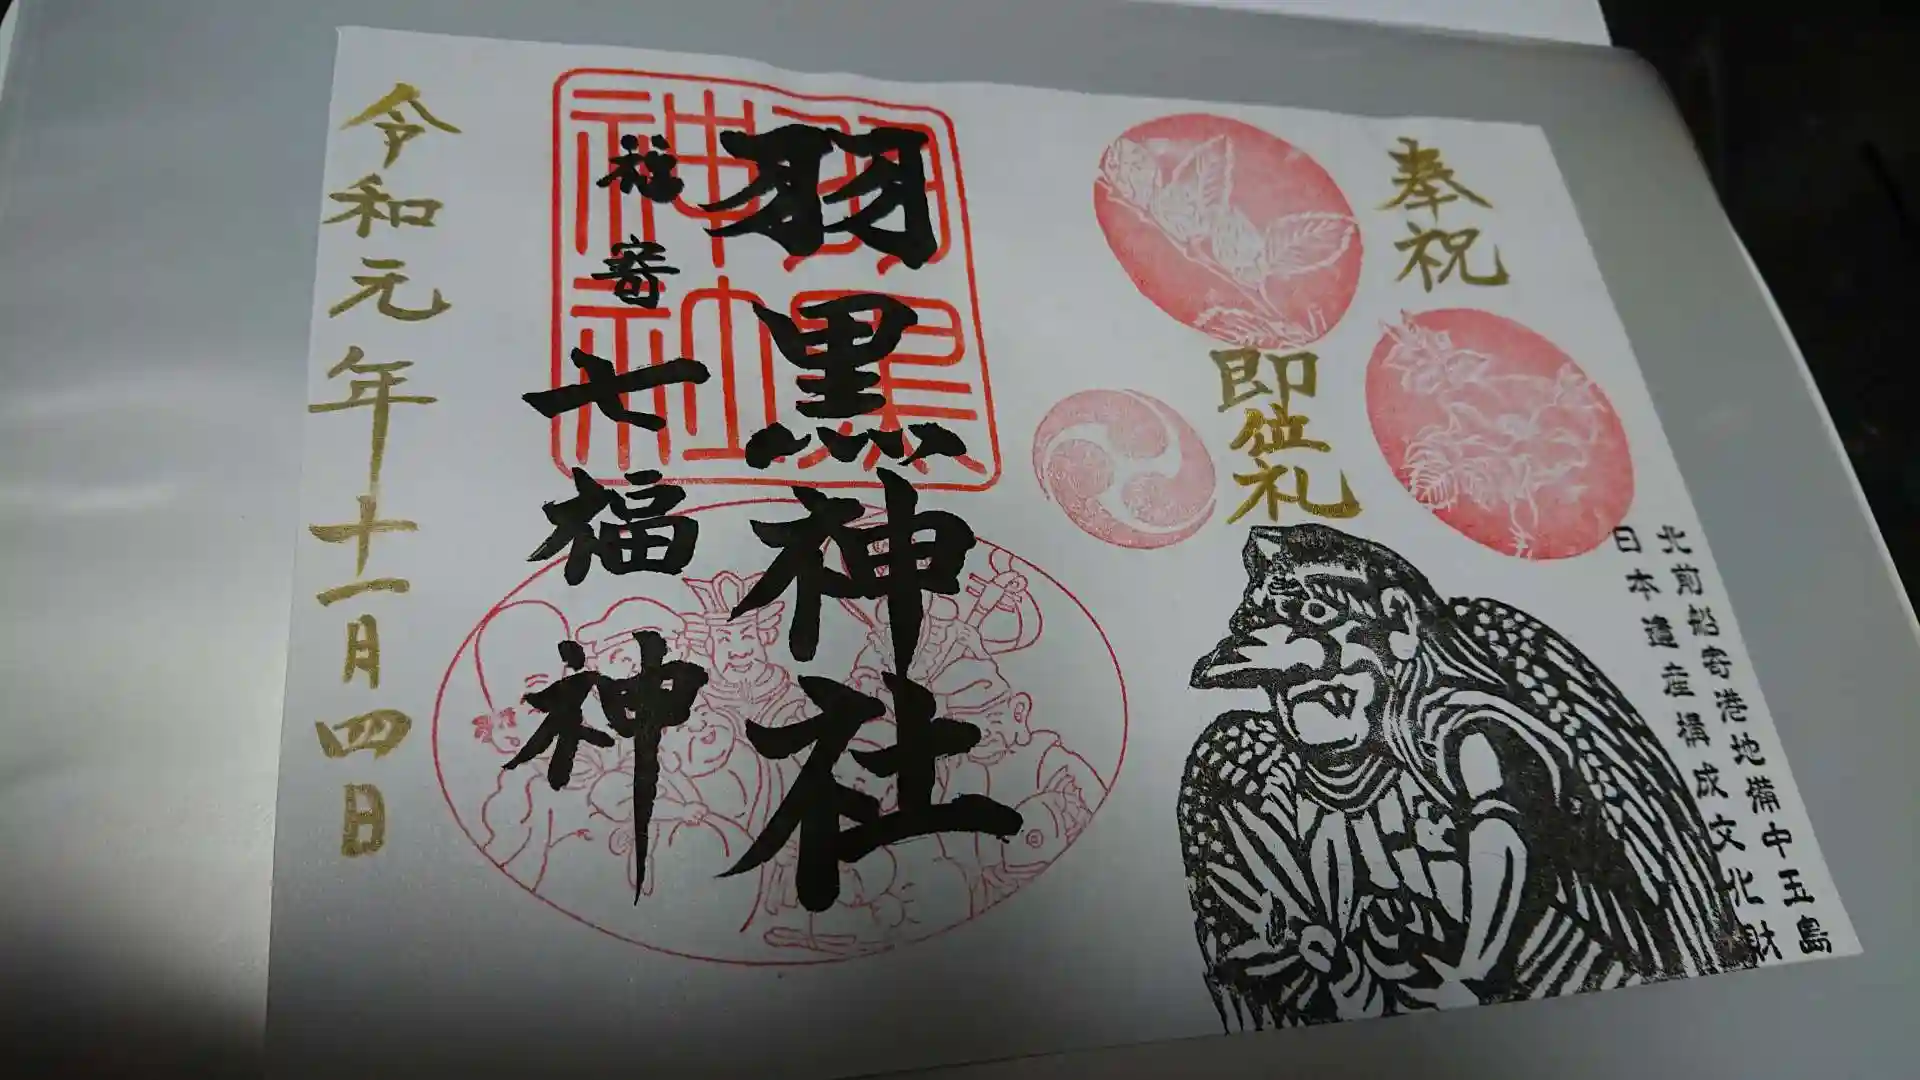 奉祝
即位礼
北前船寄港地備中玉島
日本遺産構成文化財
羽黒神社
羽黒神社
福寄七福神
令和元年十一月四日